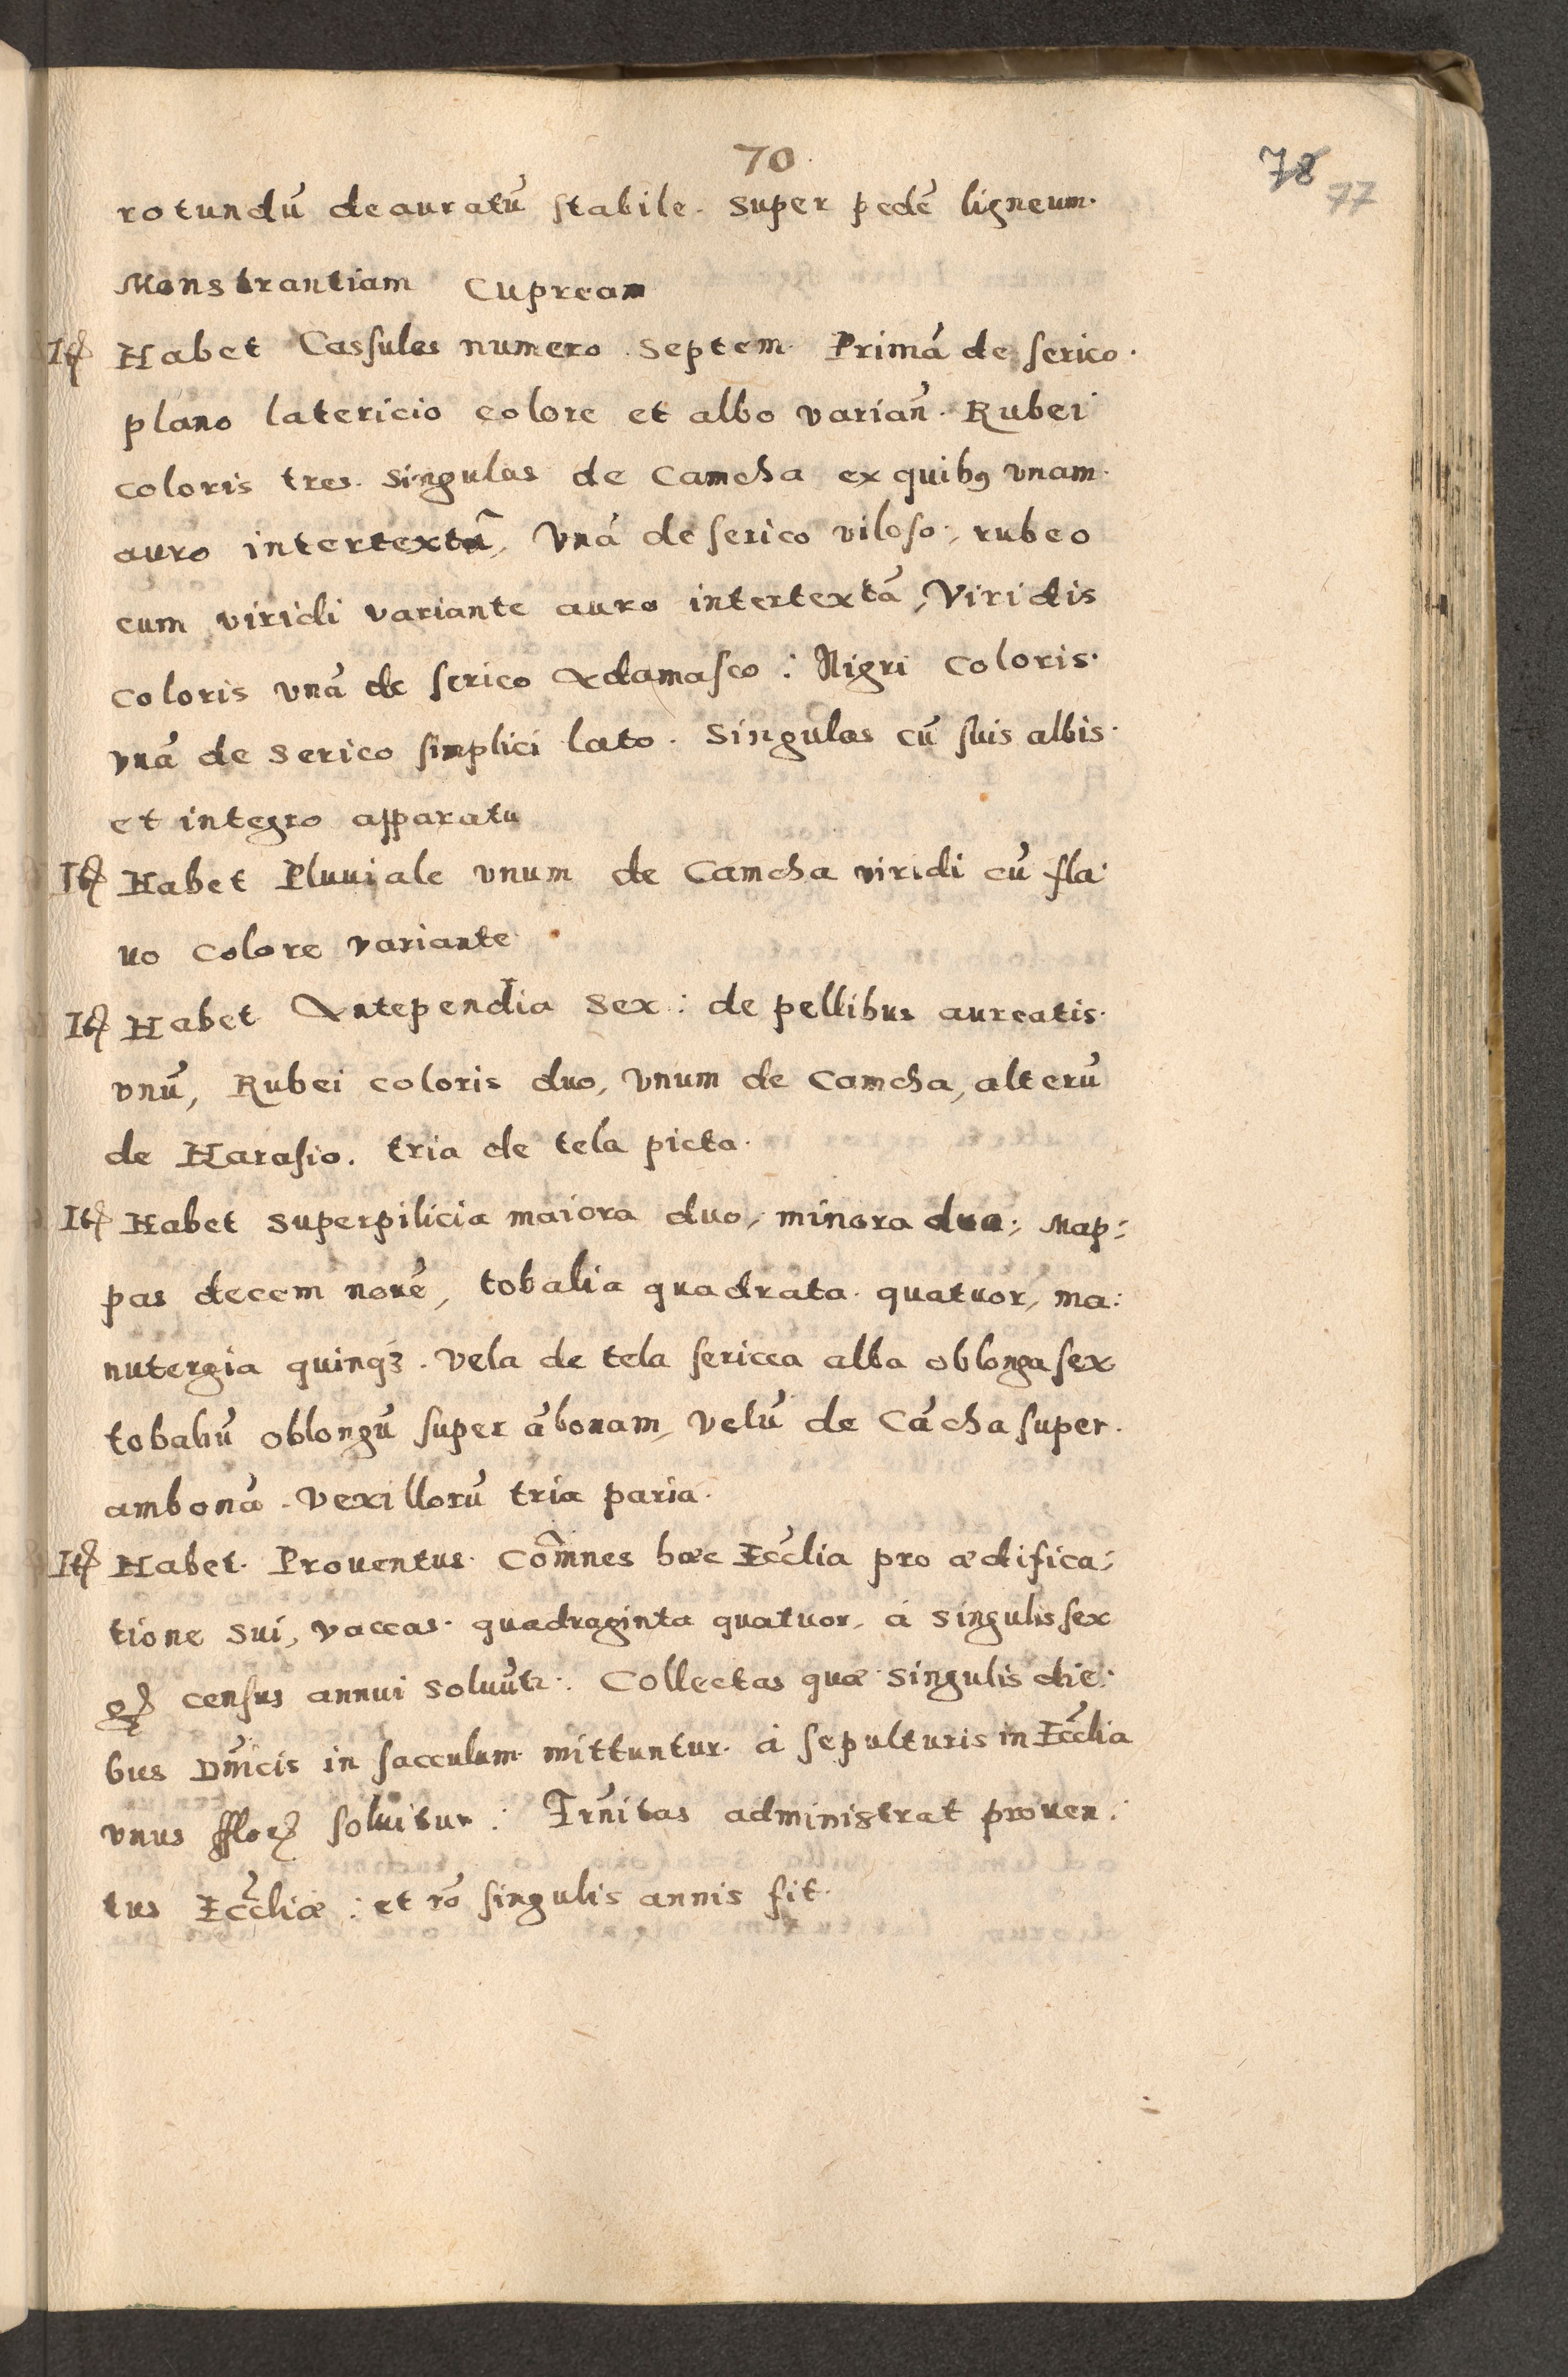 70
78 77
rotundū deauratū stabile. super pedē ligneum.
Monstrantiam Cupream
Itē Habet Cassulas numero septem. Primā de serico.
plano latericio colore et albo varian̄. Rubei
coloris tres. singulas de Camcha ex quibꝯ vnam.
auro intertextā, Vnā de serico viloso, rubeo
cum viridi variante auro intertextā, Viridis
coloris vnā de serico Adamasco: Nigri coloris.
vnā de serico simplici lato. Singulas cū suis albis.
et integro apparatu
Itē Habet Pluuiale vnum de Camcha viridi cū fla:
uo colore variante
Itē Habet Antependia sex: de pellibus aureatis.
vnū, Rubei coloris duo, vnum de Camcha, alterū
de Harasio. tria de tela picta.
Itē Habet superpilicia maiora duo, minora duo; Map:
pas decem nouē, tobalia quadrata. quatuor, ma:
nutergia quinqꝫ. Vela de tela sericea alba oblonga sex
tobaliū oblongū super ābonam, velū de Cācha super.
ambonā. Vexillorū tria paria.
Itē Habet. Prouentus. Cōmnes hæc Eccl̄ia pro ædifica:
tione sui, vaccas. quadraginta quatuor, à singulis sex
gͬ census annui soluūtr. Collectas quæ singulis die:
bus Dn̄icis in sacculum. mittuntur. à sepulturis in Eccl̄ia
vnus fflor̄ soluitur: Fr̄nitas administrat prouen:
tus Eccl̄iæ: et rō singulis annis fit.